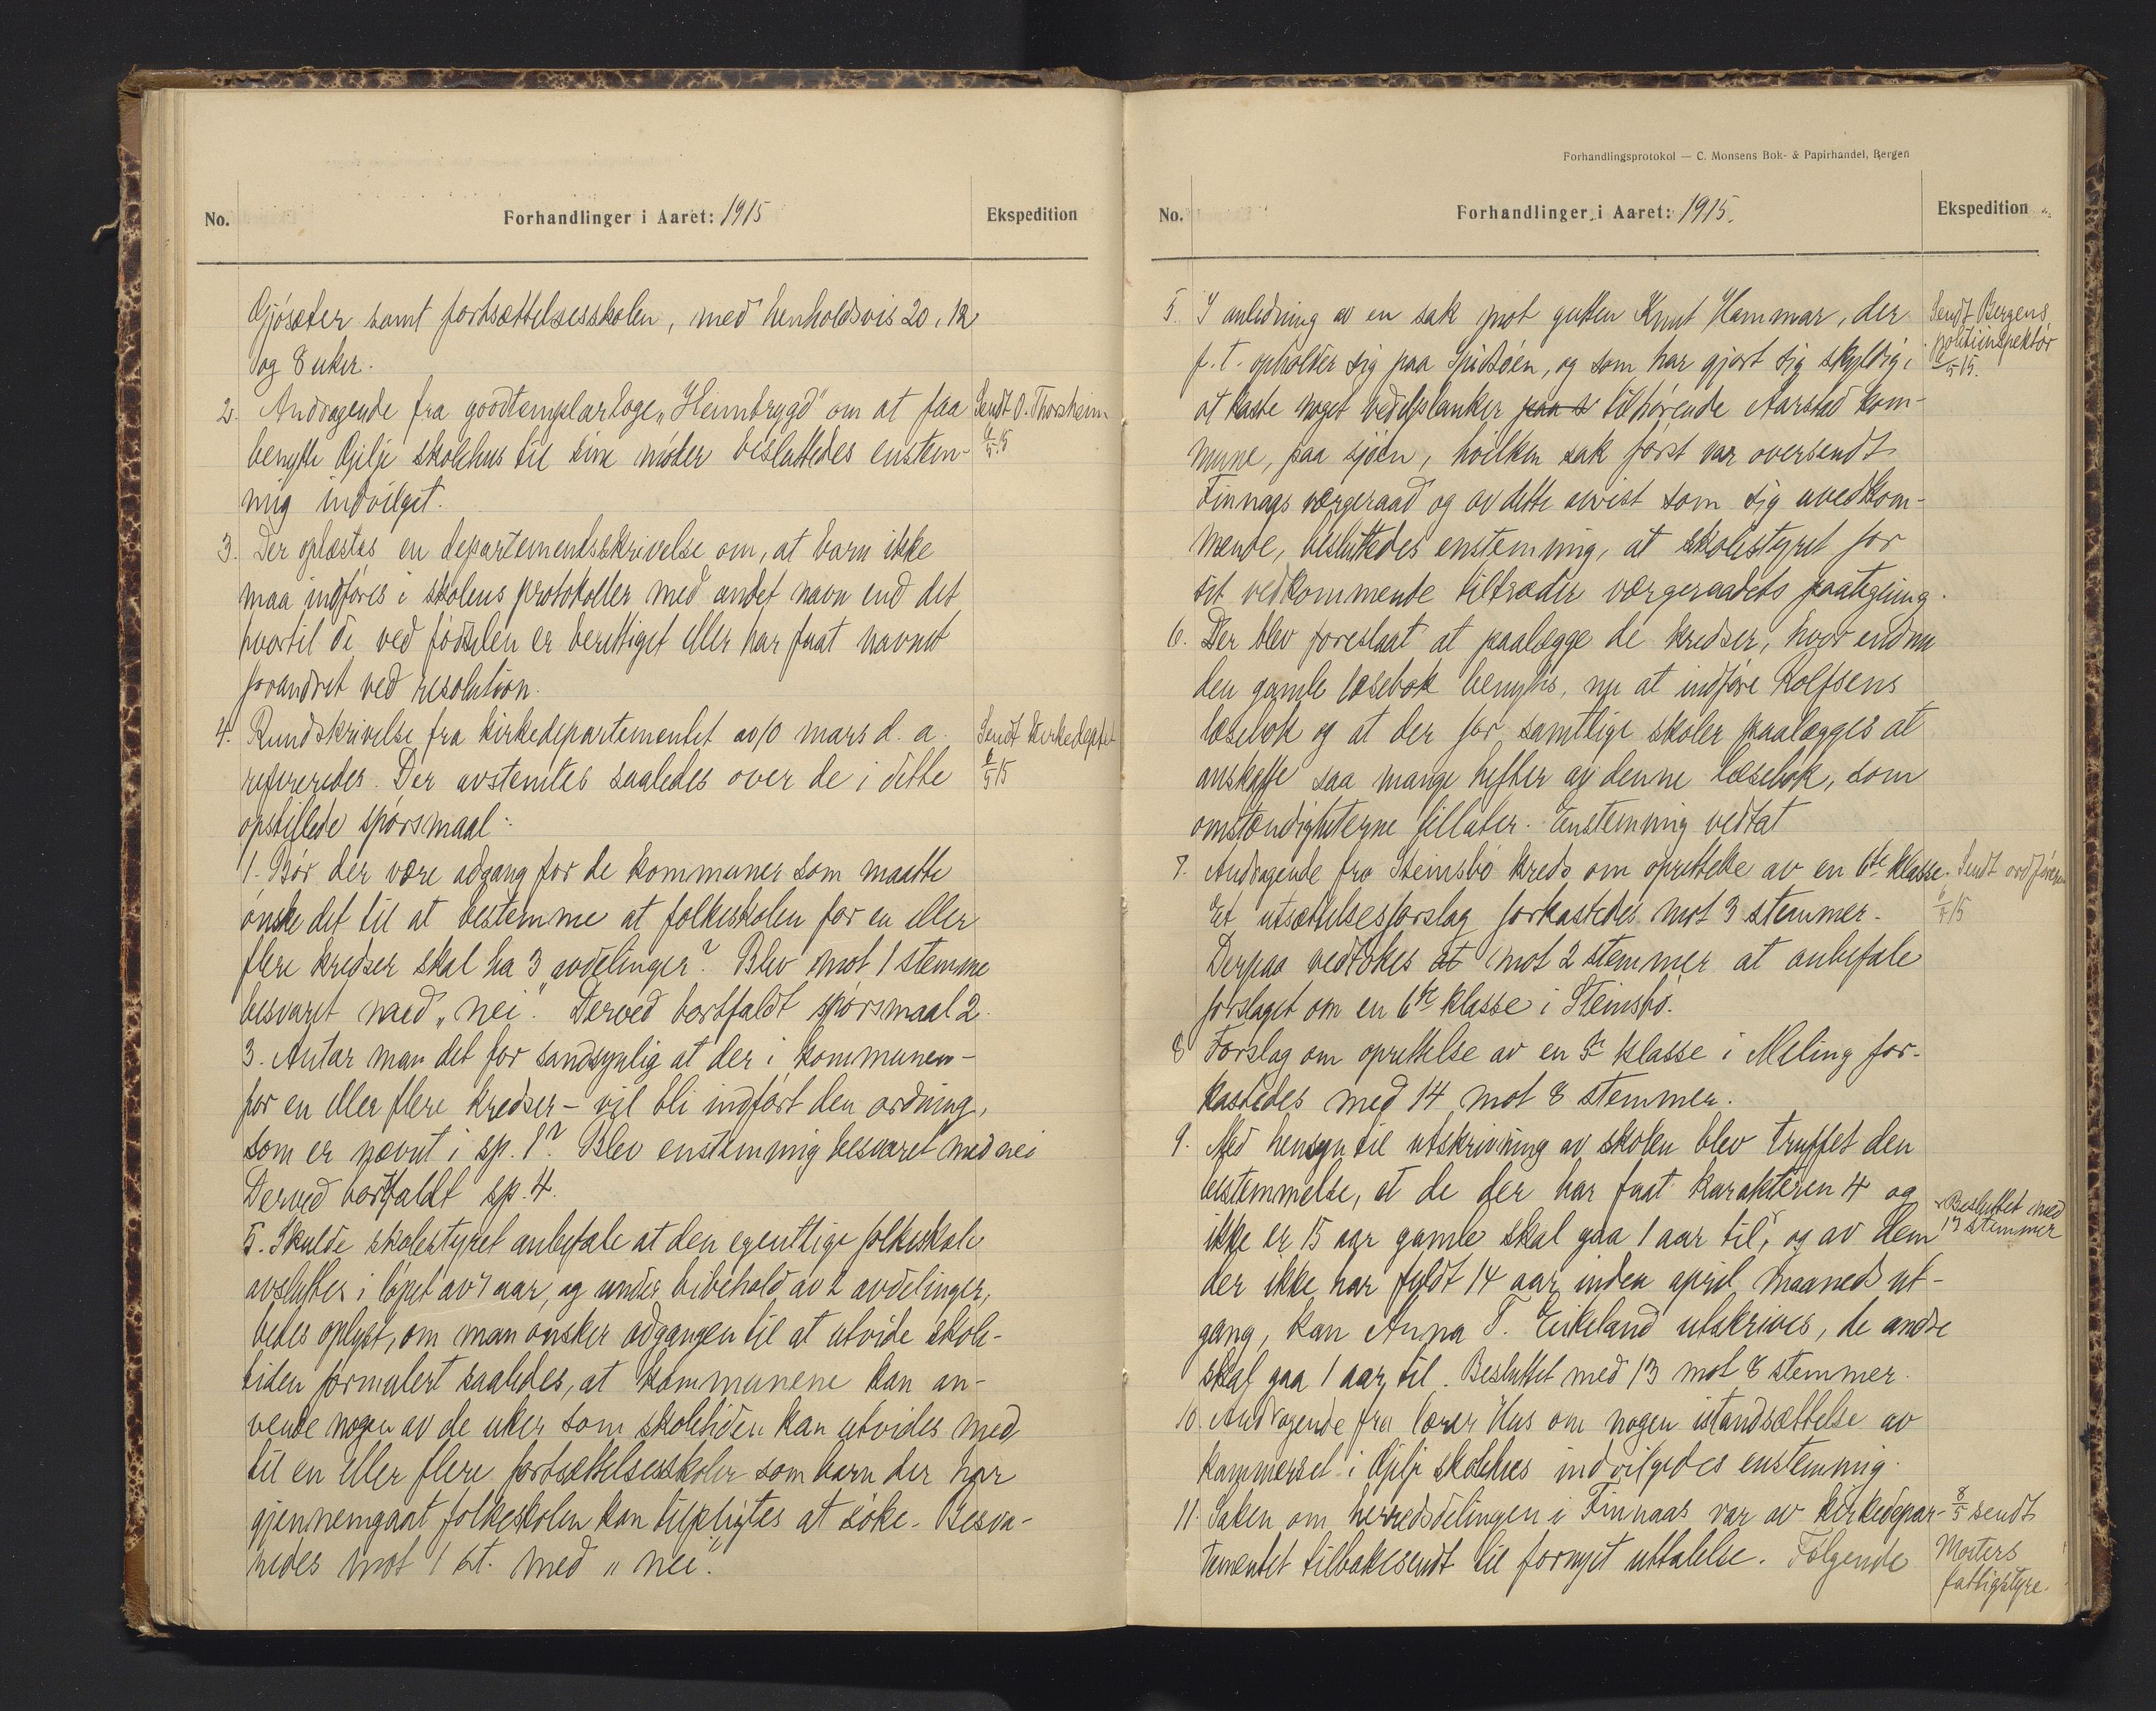 No.
Forhandlinger i Aaret: 1915
Ekspedition
Gjøsæter samt fortsættelsesskolen, med henholdsvis 20, 12
og 8 uker.
2. Andragende fra goodtemplarloge „Heimbrygd" om at faa
benytte Gilje skolehus til sine møter besluttedes enstem-
mig indvilget.
Sendt O. Thorsheim
6/5 15
3. Der oplæstes en departementsskrivelse om, at barn ikke
maa indføres i skolens protokoller med andet navn end det
hvortil de ved fødselen er berettiget eller har faat navnet
forandret ved resolution.
4. Rundskrivelse fra kirkedepartementet av 10 mars d. a.
refereredes. Der avstemtes saaledes over de i dette
opstillede spørsmaal:
Sendt Kirkedeptet
6/5 15
1. Bør der være adgang for de kommuner som maatte
ønske det til at bestemme at folkeskolen for en eller
flere kredser skal ha 3 avdelinger? Blev mot 1 stemme
besvaret med „nei". Derved bortfaldt spørsmaal 2.
3. Antar man det for sandsynlig at der i kommunen –
for en eller flere kredser – vil bli indført den ordning,
som er nævnt i sp. 1? Blev enstemmig besvaret med nei
Derved bortfaldt sp. 4.
5. Skulde skolestyret anbefale at den egentlige folkeskole
avsluttes i løpet av 7 aar, og under bibehold av 2 avdelinger,
bedes oplyst, om man ønsker adgangen til at utvide skole-
tiden formulert saaledes, at kommunene kan an-
vende nogen av de uker som skoletiden kan utvides med
til en eller flere fortsættelsesskoler som barn der har
gjennemgaat folkeskolen kan tilpligtes at søke. Besva-
redes mot 1 st. med „nei".
Forhandlingsprotokol — C. Monsens Bok- & Papirhandel, Bergen
No.
Forhandlinger i Aaret: 1915.
Ekspedition
5. I anledning av en sak mot gutten Knut Hammar, der
f. t. opholder sig paa Spidsøen, og som har gjort sig skyldig i
at kaste noget vedplanker paa s tilhørende Aarstad kom-
mune, paa sjøen, hvilken sak først var oversendt
Finnaas værgeraad og av dette avvist som sig uvedkom-
mende, besluttedes enstemmig, at skolestyret for
sit vedkommende tiltræder værgeraadets paategning.
Sendt Bergens
politiinspektør
6/5 15.
6. Der blev foreslaat at paalægge de kredser, hvor endnu
den gamle læsebok benyttes, nu at indføre Rolfsens
læsebok og at der for samtlige skoler paalægges at
anskaffe saa mange hefter av denne læsebok, som
omstændigheterne tillater. Enstemmig vedtat
7. Andragende fra Steinsbø kreds om oprettelse av en 6te klasse.
Et utsættelsesforslag forkastedes mot 3 stemmer.
Derpaa vedtokes at mot 2 stemmer at anbefale
forslaget om en 6te klasse i Steinsbø.
Sendt ordføreren
6/5 15
8 Forslag om oprettelse av en 5te klasse i Meling for-
kastedes med 14 mot 8 stemmer.
9. Med hensyn til utskrivning av skolen blev truffet den
bestemmelse, at de der har faat karakteren 4 og
ikke er 15 aar gamle skal gaa 1 aar til, og av dem
der ikke har fyldt 14 aar inden april maaneds ut-
gang, kan Anna T. Eikeland utskrives, de andre
skal gaa 1 aar til. Besluttet med 13 mot 8 stemmer.
Besluttet med
17 stemmer
10. Andragende fra lærer Hus om nogen istandsættelse av
kammerset i Gilje skolehus indvilgedes enstemmig.
11. Saken om herredsdelingen i Finnaas var av kirkedepar-
tementet tilbakesendt til fornyet uttalelse. Følgende
8/5 sendt
Mosters
fattigstyre.